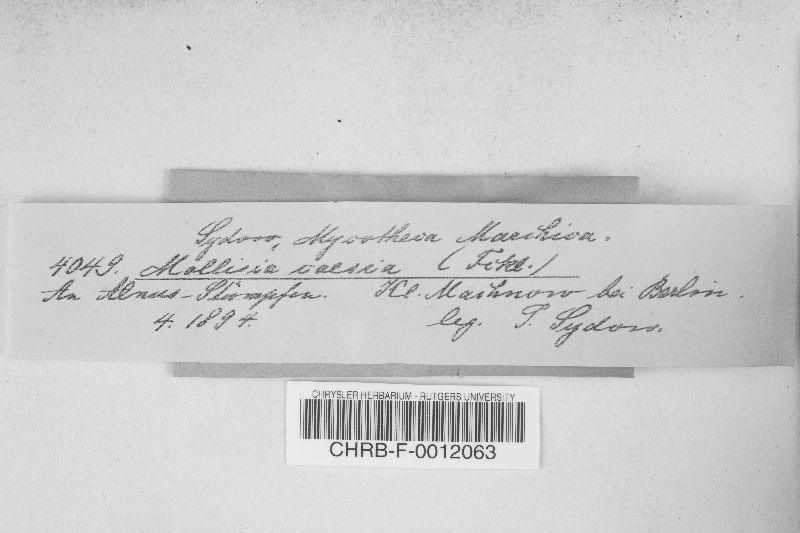 Sydow, Mycotheca Marchica.
4049. Mollisia caesia (Fckl.)
An Alnus-Stümpfen. Kl. Machnow bei Berlin.
4. 1894. leg. P. Sydow.
CHRYSLER HERBARIUM - RUTGERS UNIVERSITY
CHRB-F-0012063